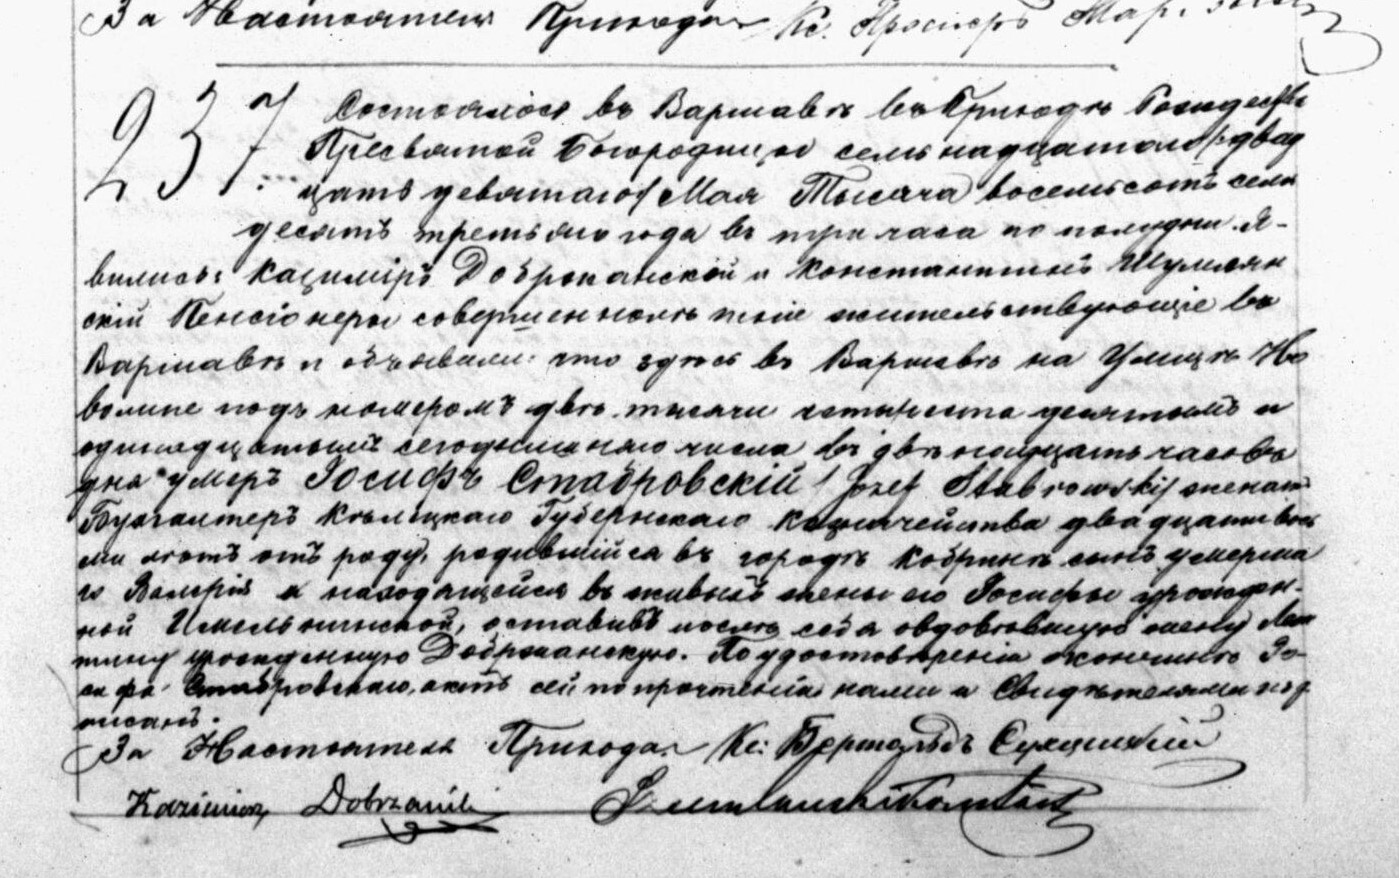 За Настоятеля Прихода Кс. Просперъ Мар.
237.
Состоялось въ Варшавѣ въ Приходѣ Рождества
Пресвятой Богородицы семьнадцатаго /двад
цать девятаго/ Мая Тысяча восемьсотъ семь
десятъ третьяго года въ три часа по полудни. Я-
вились: Казиміръ Доброжанскій и Константинъ Шумлян
скій Пенсіонеры совершеннолѣтніе жительствующіе въ
Варшавѣ и объявили: что здѣсь въ Варшавѣ на Улицѣ Но
волипе подъ номеромъ двѣ тысячи четыреста десятымъ и
одиннадцатымъ сегодняшняго числа въ двѣнадцать часовъ
дня умеръ Іосифъ Стабровскій /Józef Stabrowski/ женатъ
Бухгалтеръ Кѣлецкаго Губернскаго Казначейства двадцати вось
ми лѣтъ отъ роду, родившійся въ городѣ Кобринѣ сынъ умерша
го Валерія и находящейся въ живыхъ жены его Іосифы урожден-
ной оставивъ послѣ себя овдовѣвшую жену
урожденную Доброжанскую. По удостовѣреніи кончины Іо-
сифа Стабровскаго, актъ сей по прочтеніи нами и Свидѣтелями под
писанъ.
За Настоятеля Прихода Кс: Бертольдъ
Kazimierz Dobrzański